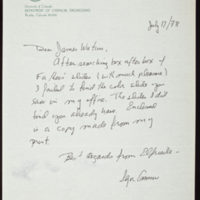 University of Colorado
DEPARTMENT OF CHEMICAL ENGINEERING
Boulder, Colorado
July 17/78
Dear James Watson,
After searching box after box of
Father's slides (with much pleasure)
I failed to find the color slide you
saw in my office. The slides I did
find you already have. Enclosed
is a copy made from my
print.
Best regards from Elfriede.
Igor Gamow